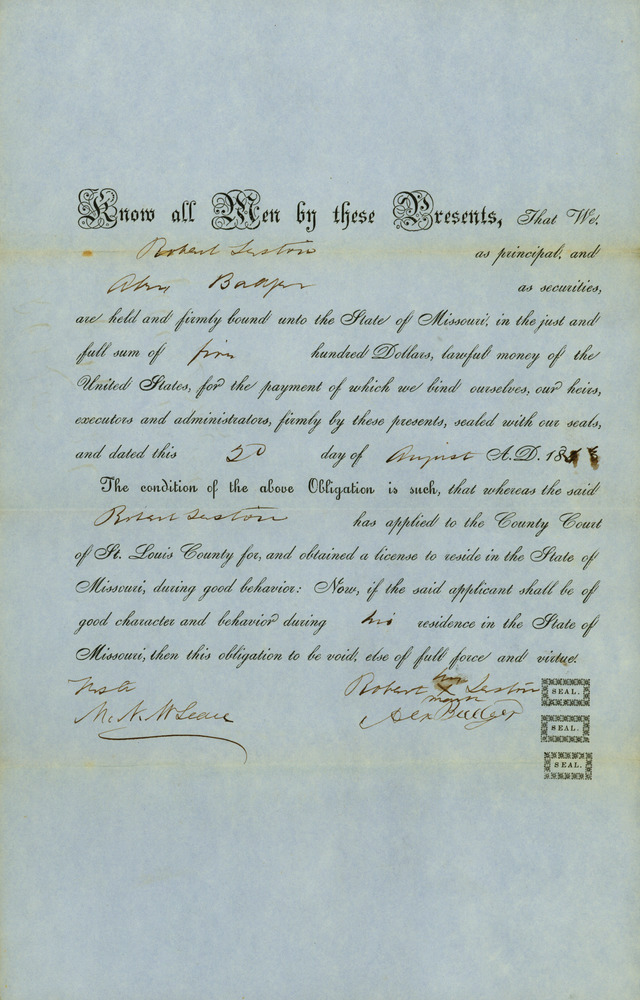 Know all Men by these Presents, That We,
Robert as principal, and
Alex Badger as securities,
are held and firmly bound unto the State of Missouri, in the just and
full sum of five hundred Dollars, lawful money of the
United States, for the payment of which we bind ourselves, our heirs,
executors and administrators, firmly by these presents, sealed with our seals,
and dated this day of August A.D. 18
The condition of the above Obligation is such, that whereas the said
Robert has applied to the County Court
of St. Louis County for, and obtained a license to reside in the State of
Missouri, during good behavior: Now, if the said applicant shall be of
good character and behavior during his residence in the State of
Missouri, then this obligation to be void, else of full force and virtue.
Robert his x mark SEAL.
Alex Badger SEAL.
SEAL.